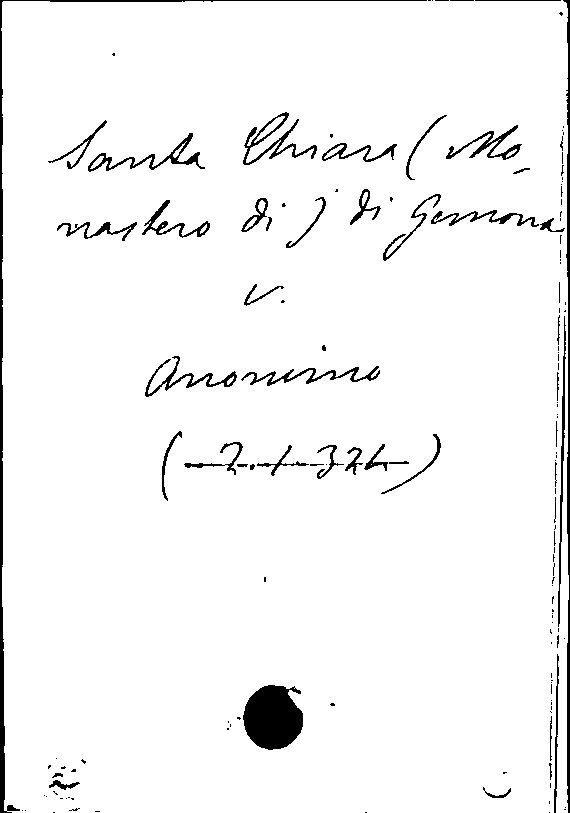 Santa Chiara (Mo-
nastero di) di Gemona
v.
Anonimo